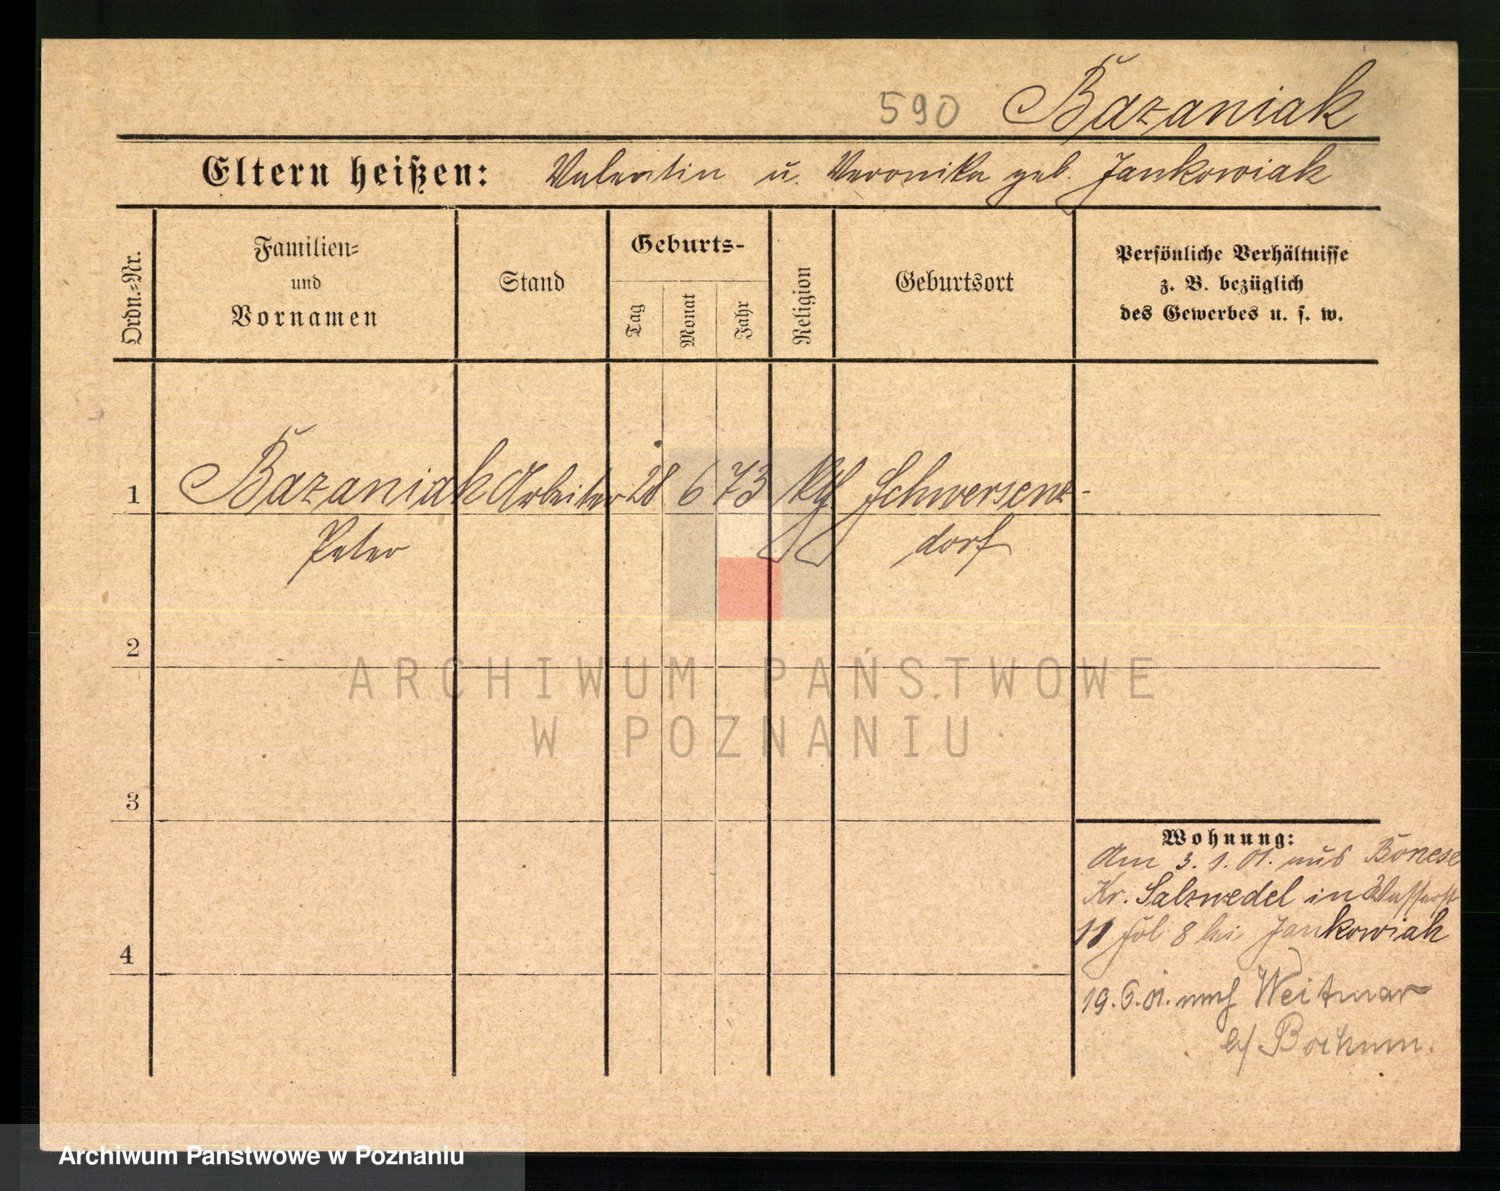 590 Bazaniak
Eltern heißen: Valentin u. Veronika geb. Jankowiak
Ordn.=Nr.
Familien=
und
Vornamen
Stand
Geburts-
Tag
Monat
Jahr
Religion
Geburtsort
Persönliche Verhältnisse
z. B. bezüglich
des Gewerbes u. s. w.
1 Bazaniak Arbeiter 28 6 73 Schwersenz-
Peter dorf
2
ARCHIWUM PAŃSTWOWE
W POZNANIU
3
Wohnung:
Am 3. 1. 01. aus Bonese
Kr. Salzwedel in
11 8 bei Jankowiak
4
19. 6. 01. nach Weitmar
b/ Bochum.
Archiwum Państwowe w Poznaniu